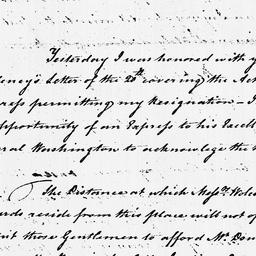 Yesterday I was honored with y
lency's Letter of the 20th covering the Act
ress permitting my Resignation — I
opportunity of an Express to his Excell
eral Washington to acknowlege the
The Distance at which Messrs. Wolco
ards reside from this place will not
mit those Gentlemen to afford Mr. Don